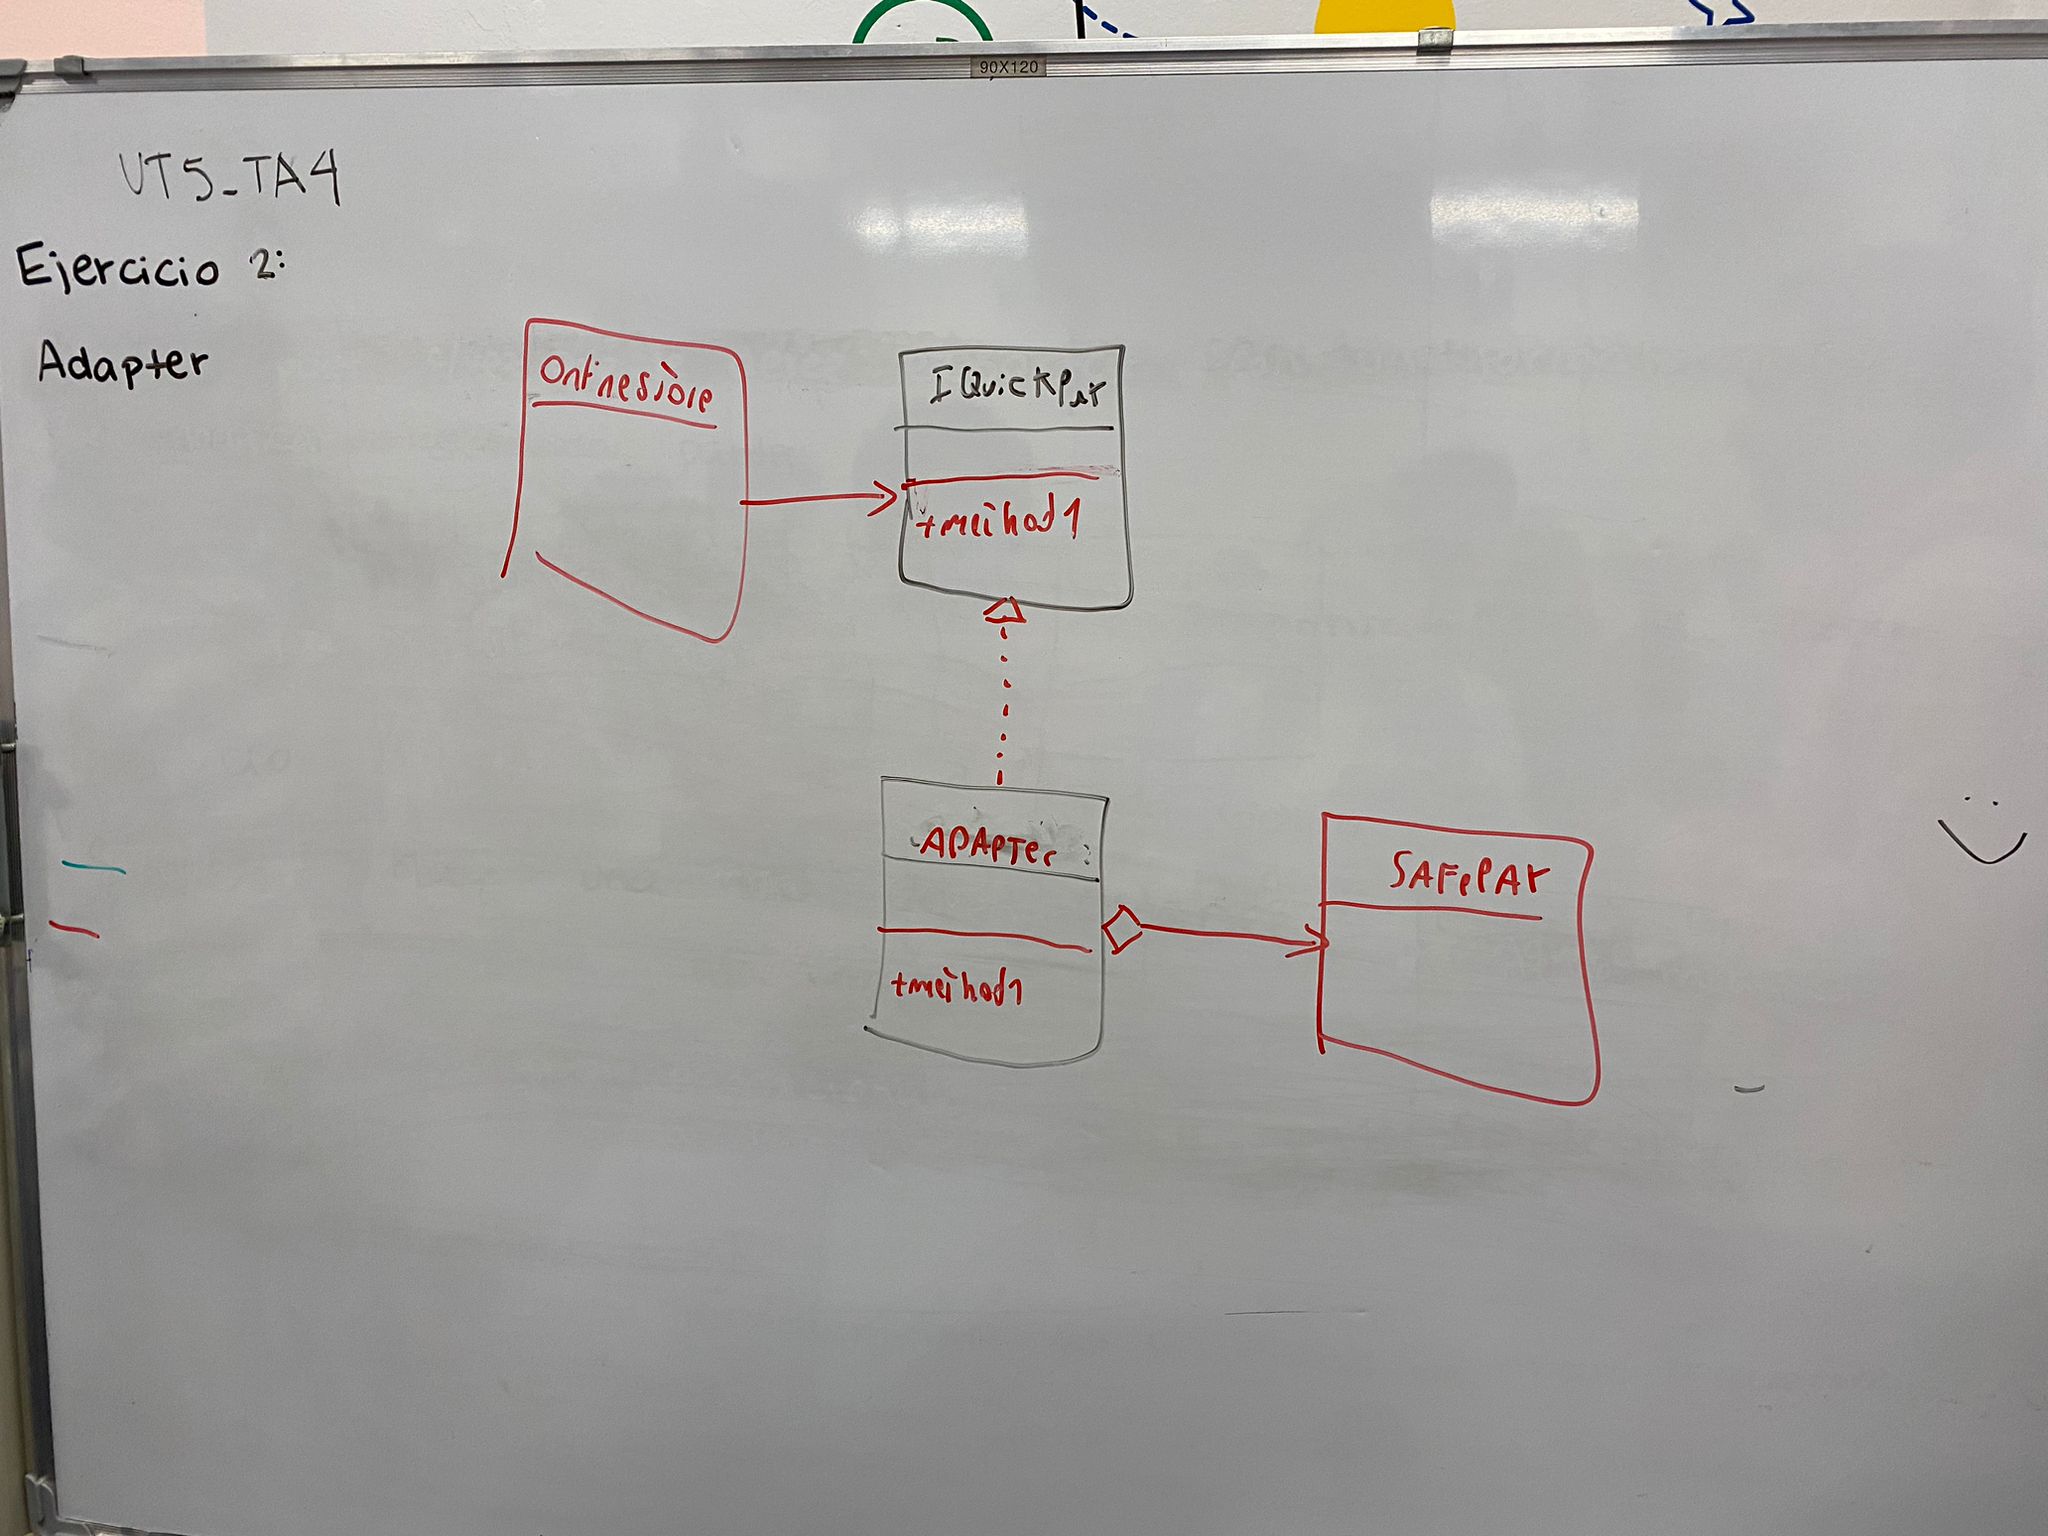 90X120
UT5_TA4
Ejercicio 2:
Adapter
OnlineStore
IQuickPay
+method1
ADAPTer
+method1
SAFePAY